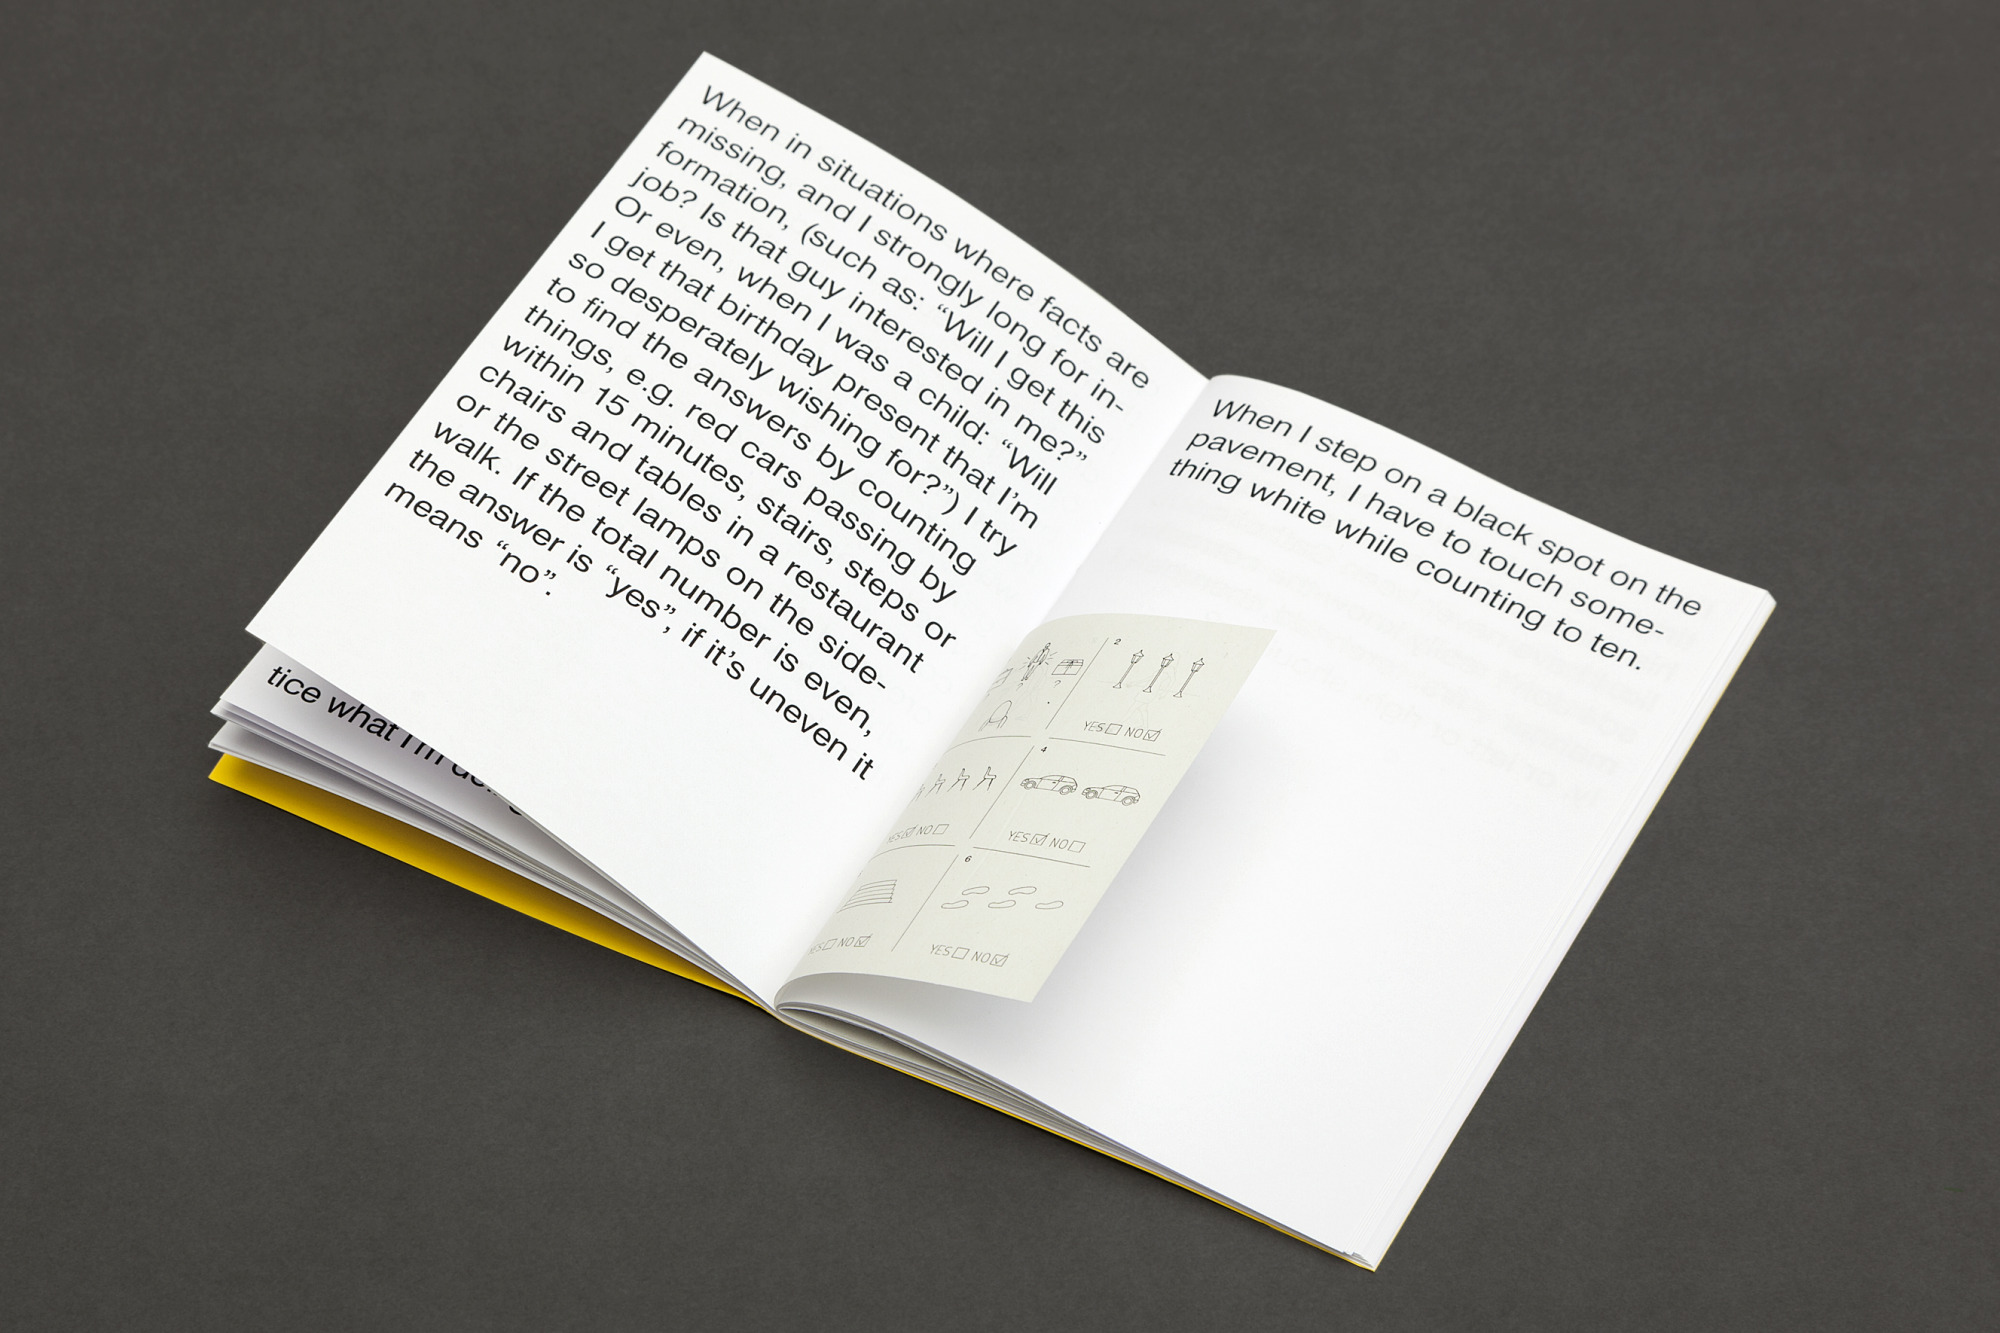 When in situations where facts are
missing, and I strongly long for in-
formation, (such as: “Will I get this
job? Is that guy interested in me?”
Or even, when I was a child: “Will
I get that birthday present that I’m
so desperately wishing for?”) I try
to find the answers by counting
things, e.g. red cars passing by
within 15 minutes, stairs, steps or
chairs and tables in a restaurant
or the street lamps on the side-
walk. If the total number is even,
the answer is “yes”, if it’s uneven it
means “no”.
tice what I’m
When I step on a black spot on the
pavement, I have to touch some-
thing white while counting to ten.
? ?
2
YES NO
4
YES NO
YES NO
6
YES NO
YES NO